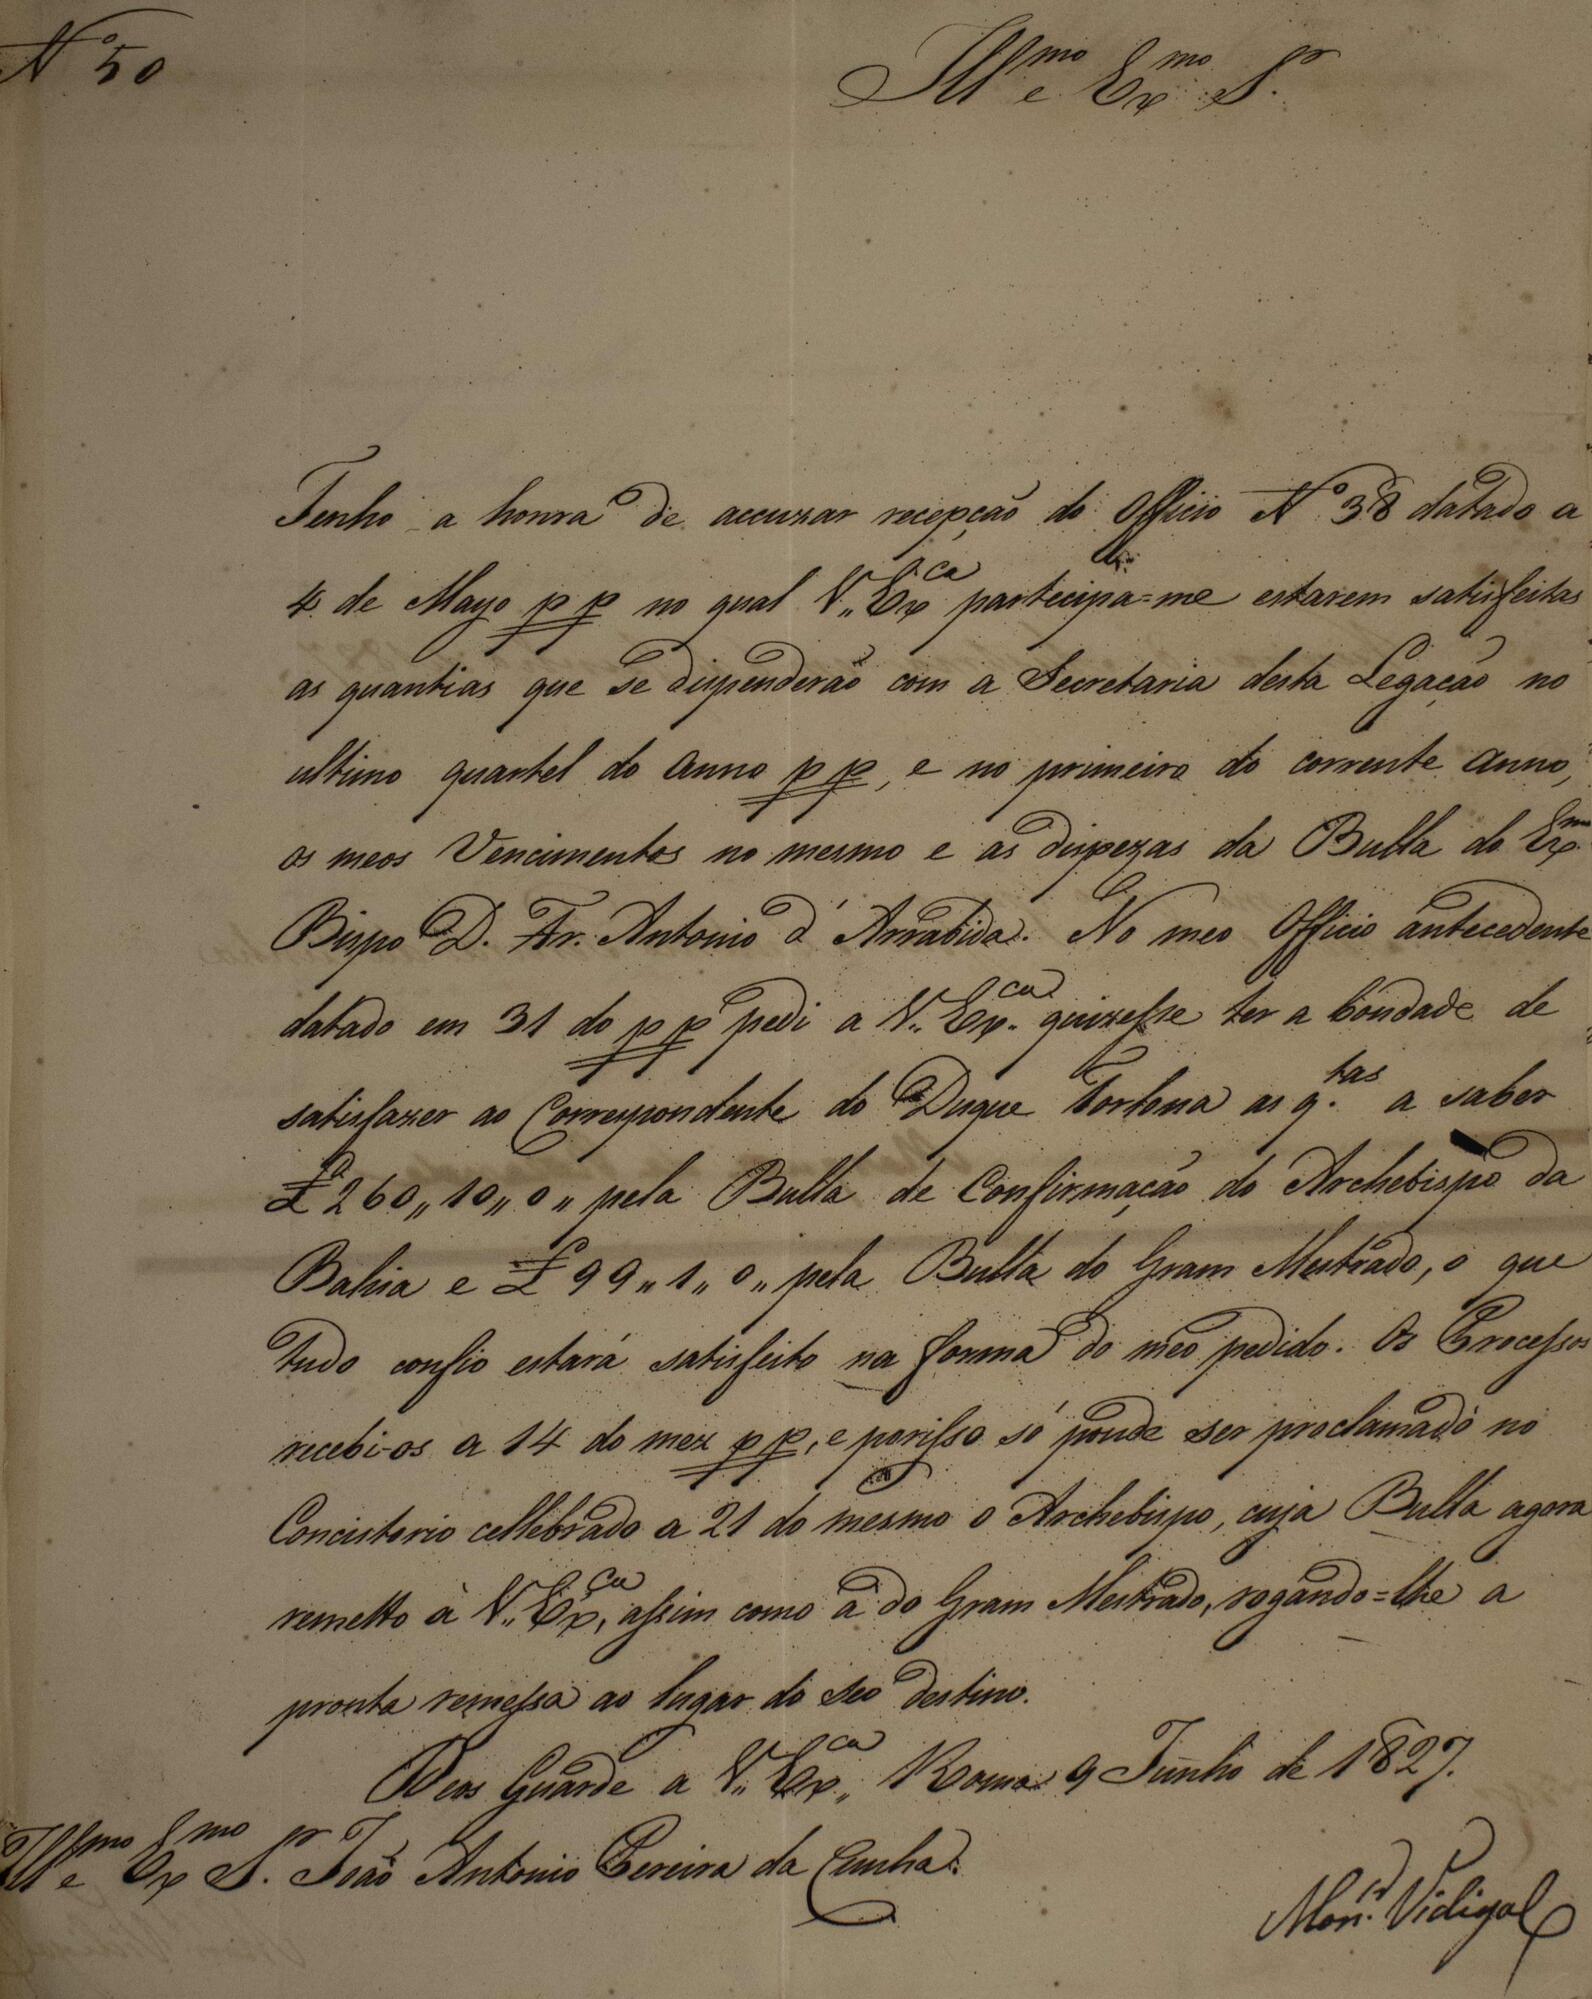 Nº 50
Illmo e Exmo Sr.
Tenho a honra de accuzar recepção do Officio Nº 38 datado a
4 de Mayo pp no qual V. Exca participa=me estarem satisfeitas
as quantias que se dispenderão com a Secretaria desta Legação no
ultimo quartel do anno pp, e no primeiro do corrente anno,
os meos Vencimentos no mesmo e as dispezas da Bulla do Exmo
Bispo D. Fr. Antonio d'Arrabida. No meo Officio antecedente
datado em 31 do pp pedi a V. Exca quizesse ter a bondade de
satisfazer ao Correspondente do Duque Torlonia as q.tas a saber
£ 260,,10,,0,, pela Bulla de Confirmação do Archebispo da
Bahia e £ 99,,1,,0,, pela Bulla do Gram Mestrado, o que
tudo confio estará satisfeito na forma do meo pedido. Os Processos
recebi-os a 14 do mez pp, e porisso só poude ser proclamado no
Concistorio cellebrado a 21 do mesmo o Archebispo, cuja Bulla agora
remetto à V. Exca, assim como a do Gram Mestrado, rogando=lhe a
pronta remessa ao lugar do seo destino.
Deos Guarde a V. Exca Roma 9 Junho de 1827.
Illmo e Exmo Sr. João Antonio Pereira da Cunha.
Mon.r Vidigal